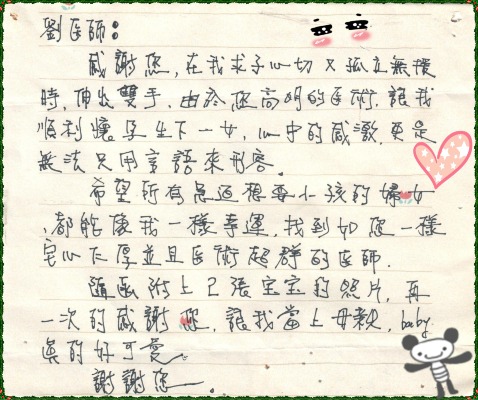 劉医師:
感謝您,在我求子心切又孤立無援
時,伸出雙手,由於您高明的医術,讓我
順利懷孕生下一女,心中的感激,更是
無法只用言語來形容
希望所有急迫想要小孩的婦女
,都能像我一樣幸運,找到如您一樣
宅心仁厚並且医術超群的医師.
隨函附上2張宝宝的照片,再
一次的感謝您,讓我當上母親,baby
真的好可愛.
謝謝您